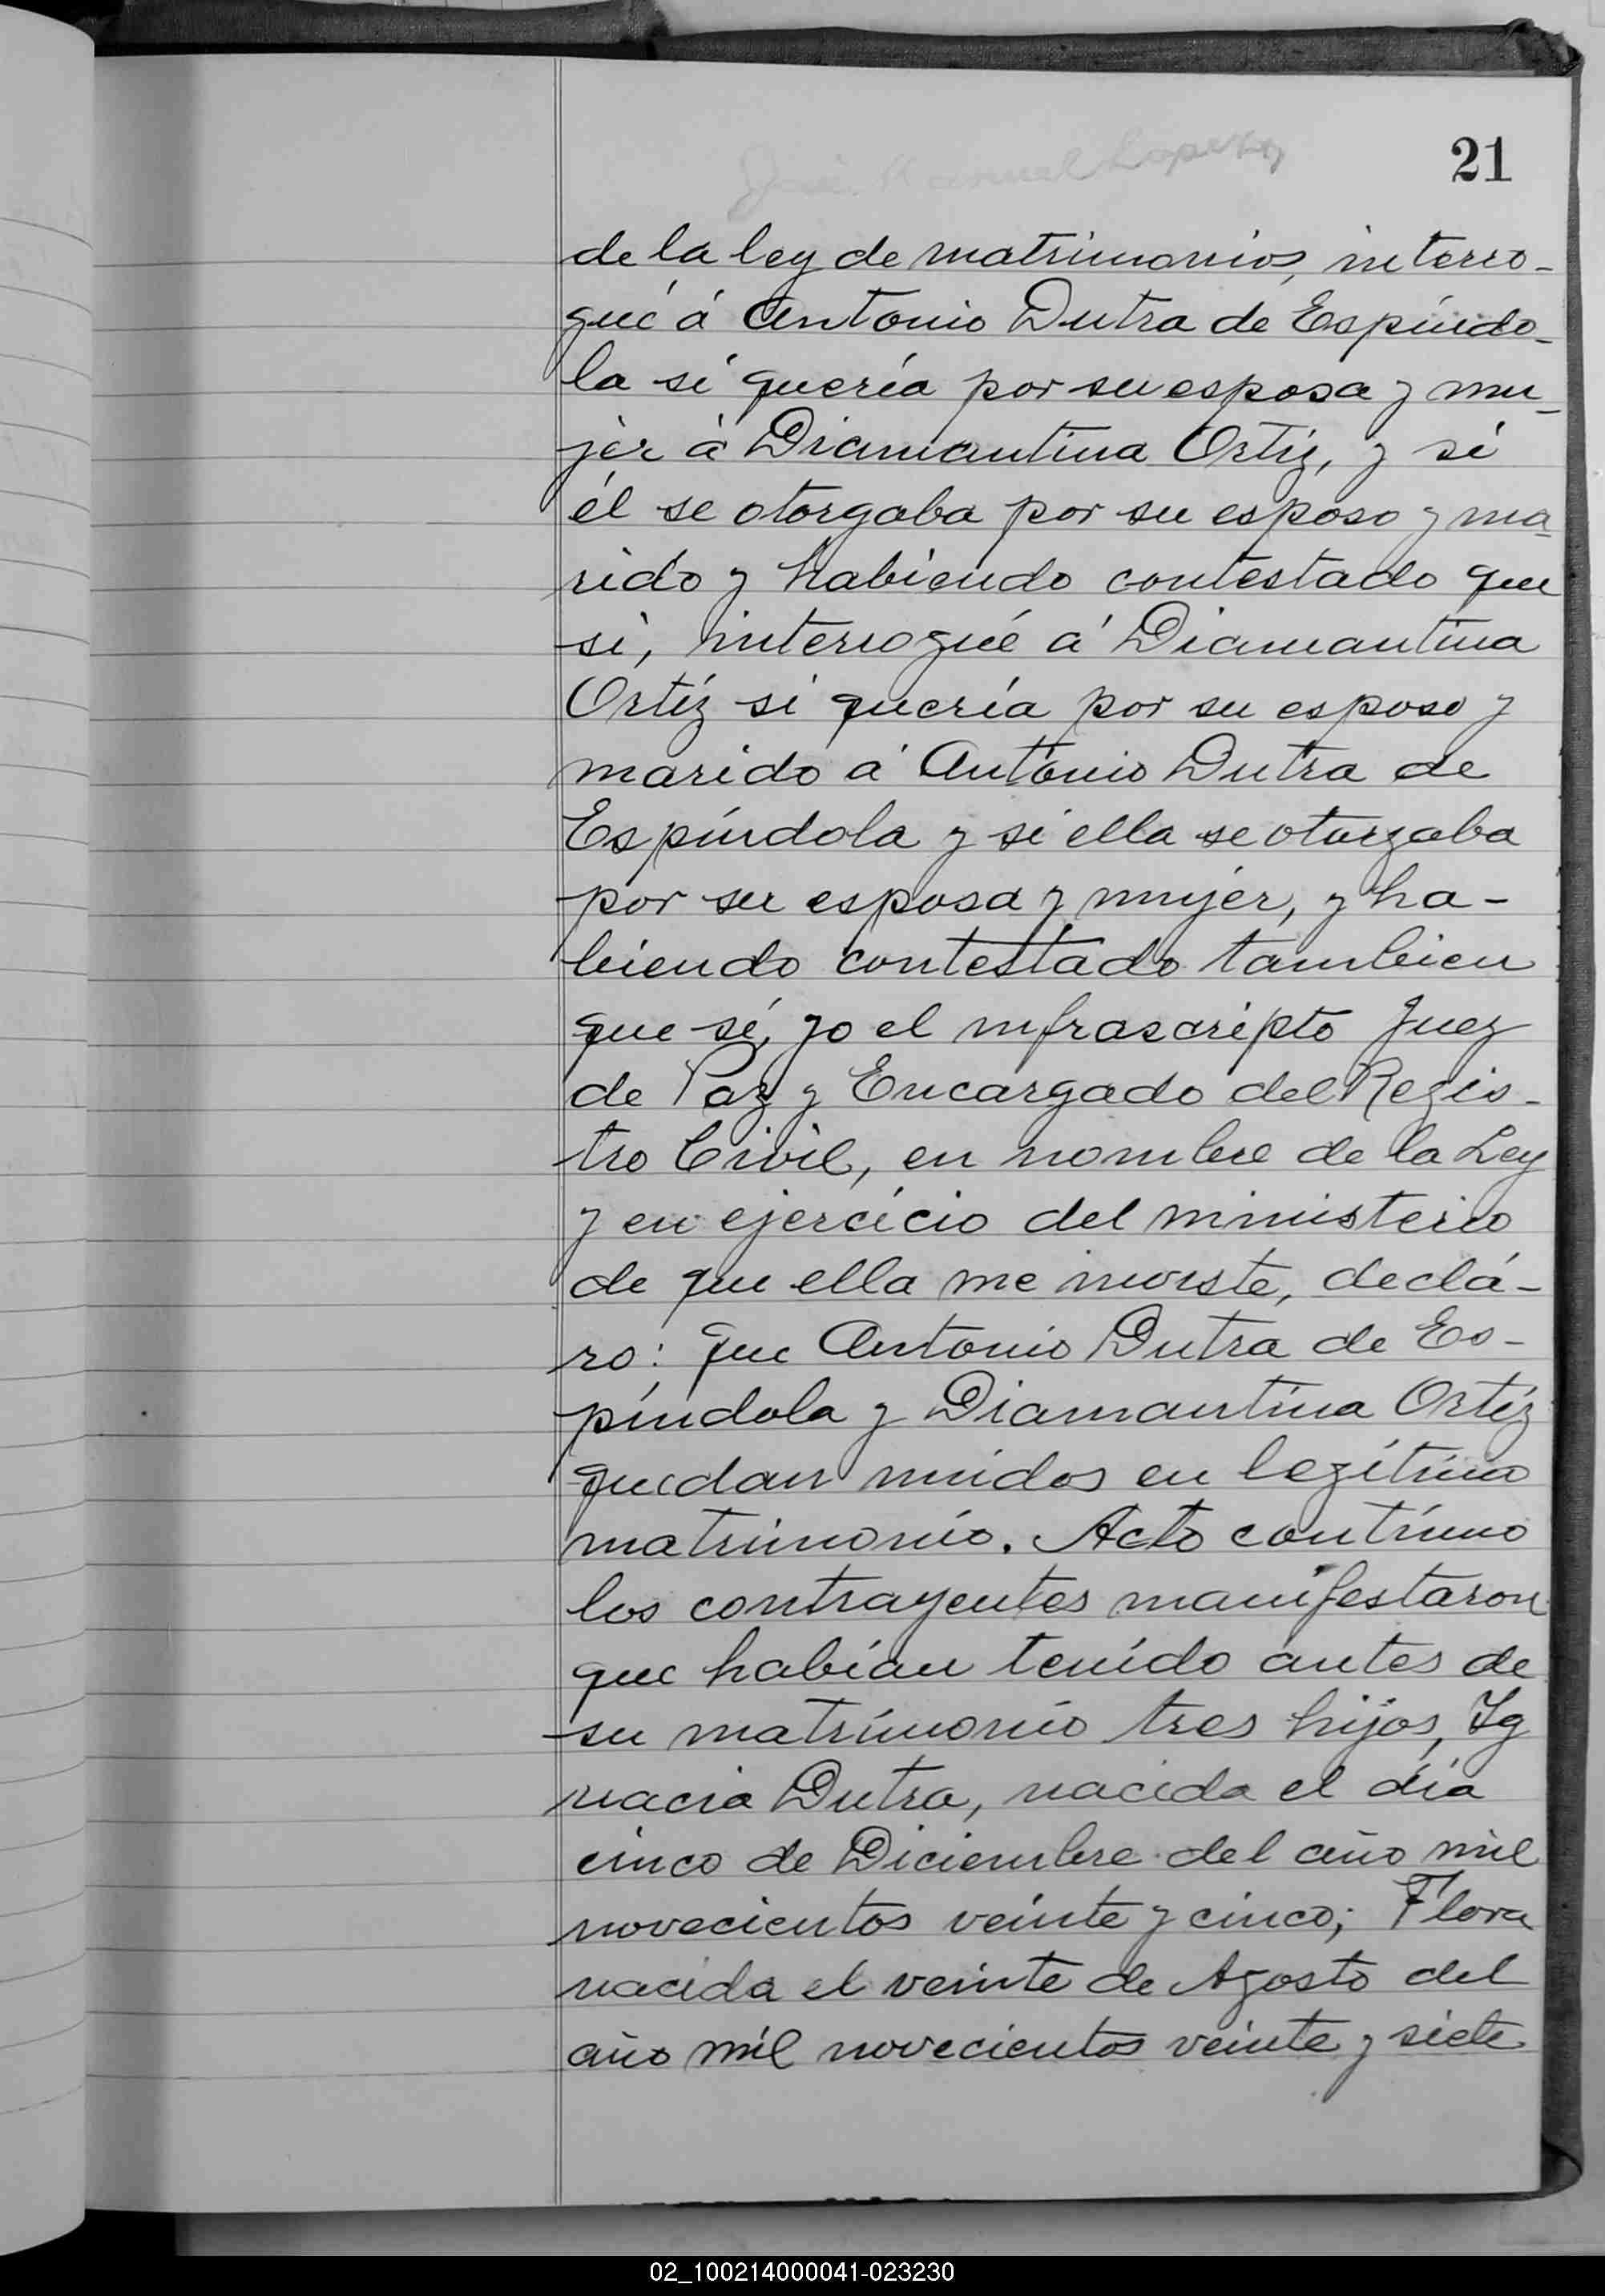 21
José Manuel Lopez
de la ley de matrimonios, interro-
gué á Antonio Dutra de Espíndo-
la si quería por su esposa y mu-
jer á Diamantina Ortíz, y si
él se otorgaba por su esposo y ma-
rido y habiendo contestado que
si, interrogué á Diamantina
Ortíz si quería por su esposo y
marido á Antonio Dutra de
Espíndola y si ella se otorgaba
por su esposa y mujer, y ha-
biendo contestado tambien
que sí, yo el infrascripto Juez
de Paz y Encargado del Regis-
tro Civil, en nombre de la Ley
y en ejercicio del ministerio
de que ella me inviste, declá-
ro: que Antonio Dutra de Es-
píndola y Diamantina Ortíz
quedan unidos en legítimo
matrimonio. Acto contínuo
los contrayentes manifestaron
que habían tenido antes de
su matrimonio tres hijos, Ig
nacia Dutra, nacida el día
cinco de Diciembre del año mil
novecientos veinte y cinco; Flora
nacida el veinte de Agosto del
año mil novecientos veinte y siete
02_100214000041-023230